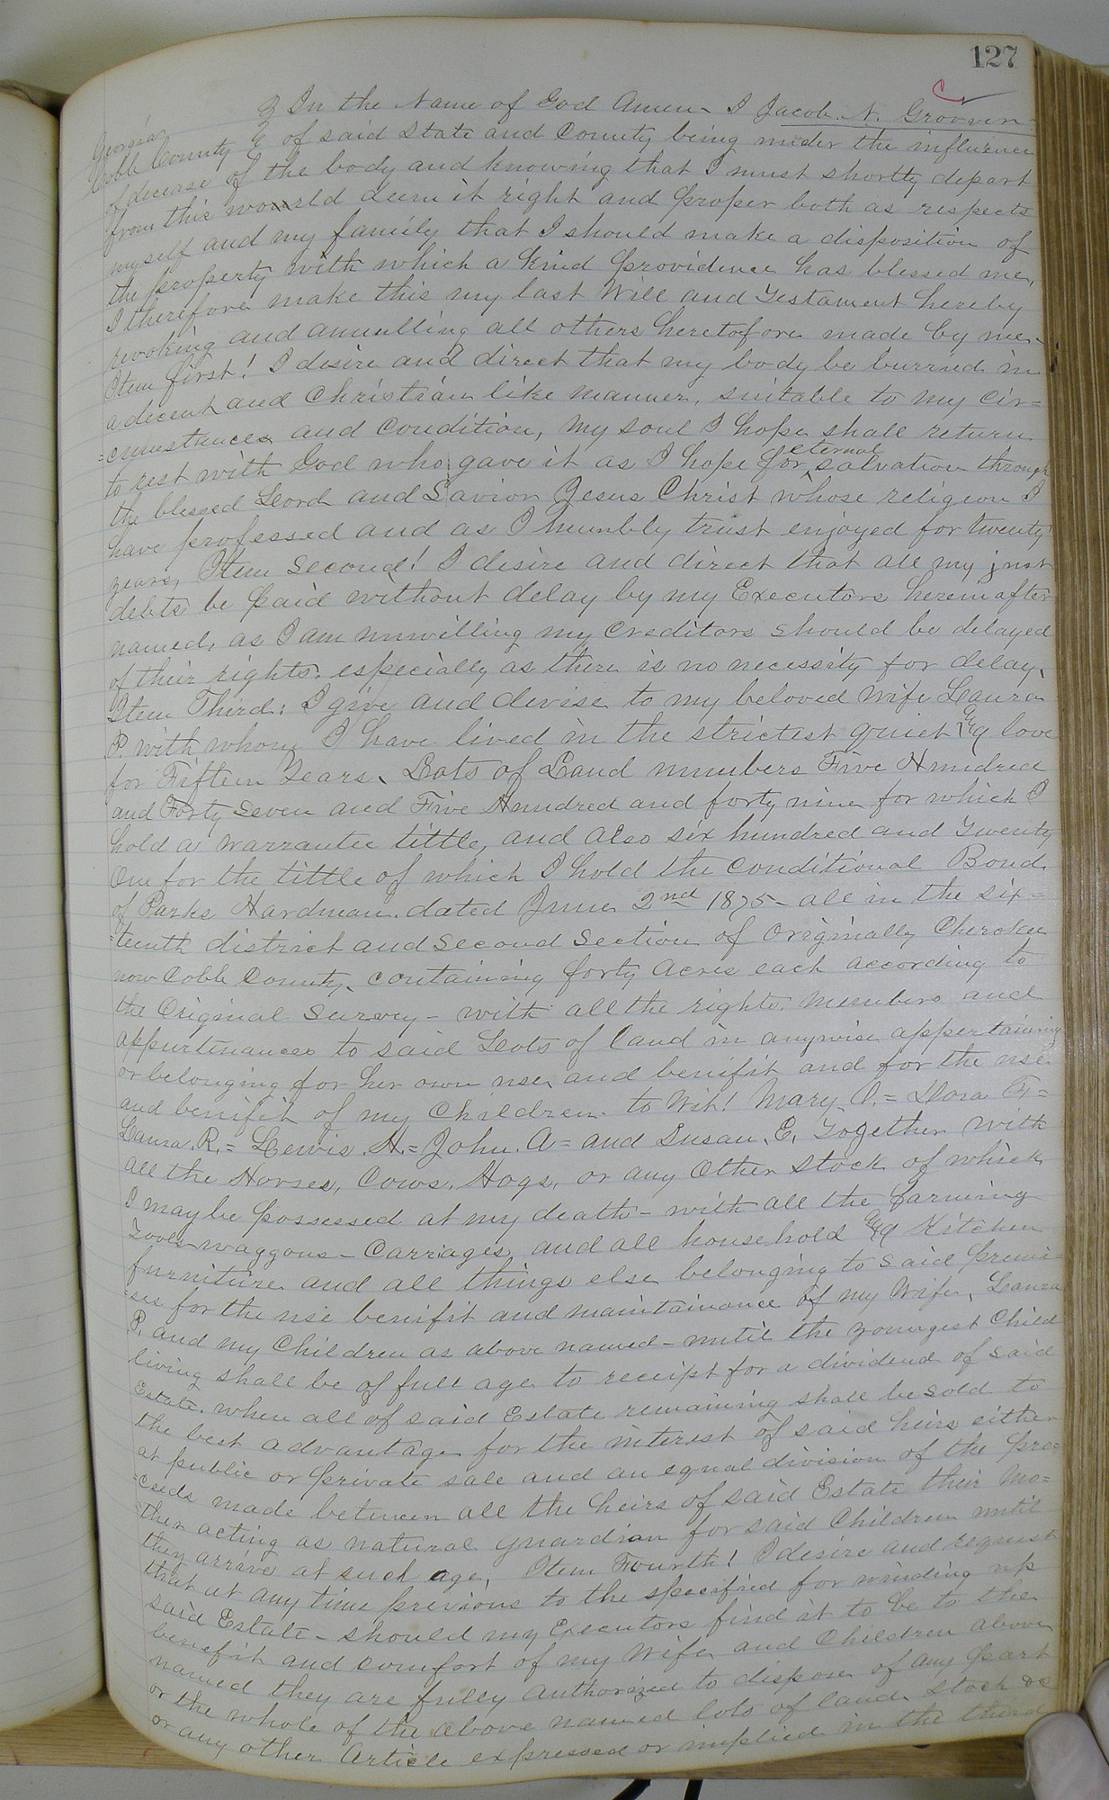 127
Georgia } In the Name of God Amen I Jacob. N. Groover
Cobb County } of said State and County being under the influence
of decease of the body and knowing that I must shortly depart
from this world deem it right and proper both as respects
myself and my family that I should make a disposition of
the property with which a kind providence has blessed me,
I therefore make this my last Will and Testament hereby
revoking and annulling all others heretofore made by me.
Item first! I desire and direct that my body be burried in
a decent and Christian like manner, suitable to my cir=
=cumstances and condition, my soul I hope shall return
to rest with God who gave it as I hope for eternal salvation through
the blessed Lord and Savior Jesus Christ whose religeon I
have professed and as I humbly trust enjoyed for twenty
years, Item Second! I desire and direct that all my just
debts be paid without delay by my Executors hereinafter
named, as I am unwilling my creditors should be delayed
of their rights. especially as there is no necessity for delay.
Item Third: I give and devise to my beloved wife Laura
P. with whom I have lived in the strictest quiet & love
for Fifteen Years, Lots of Land numbers Five Hundred
and Forty Seven and Five Hundred and forty nine for which I
hold a warrantee tittle, and also six hundred and Twenty
One for the tittle of which I hold the conditional Bond
of Parks Hardman. dated June 2nd 1875 all in the six=
=teenth district and Second Section of Originally Cherokee
now Cobb County, containing forty acres each according to
the Original Survey - with all the rights. members and
appurtinances to said Lots of land in anywise appertaining
or belonging for her own use, and benifit and for the use
and benifit of my Children to Wit! Mary. O. = Dora F =
Laura. R. = Lewis. H. = John. A = and Susan. E. Together with
all the Horses, Cows, Hogs, or any Other stock of which
I may be possessed at my death - with all the farming
Tools waggons - Carriages, and all household & Kitchen
furniture and all things else belonging to said premi=
=ses for the use benifit and maintainance of my Wife, Laura
P. and my Children as above named - until the youngest Child
living shall be of full age to receipt for a dividend of said
Estate, when all of said Estate remaining shall be sold to
the best advantage for the interest of said heirs either
at public or private sale and an equal division of the pro=
=ceeds made between all the heirs of said Estate their Mo=
ther acting as natural guardian for said Children until
they arrive at such age, Item Fourth! I desire and request
that at any time previous to the specified for winding up
said Estate - should my Executors find it to be to the
benefit and comfort of my wife and Children above
named they are fully authorized to dispose of any part
or the whole of the above named lots of land. Stock &c
or any other Article expressed or implied in the third